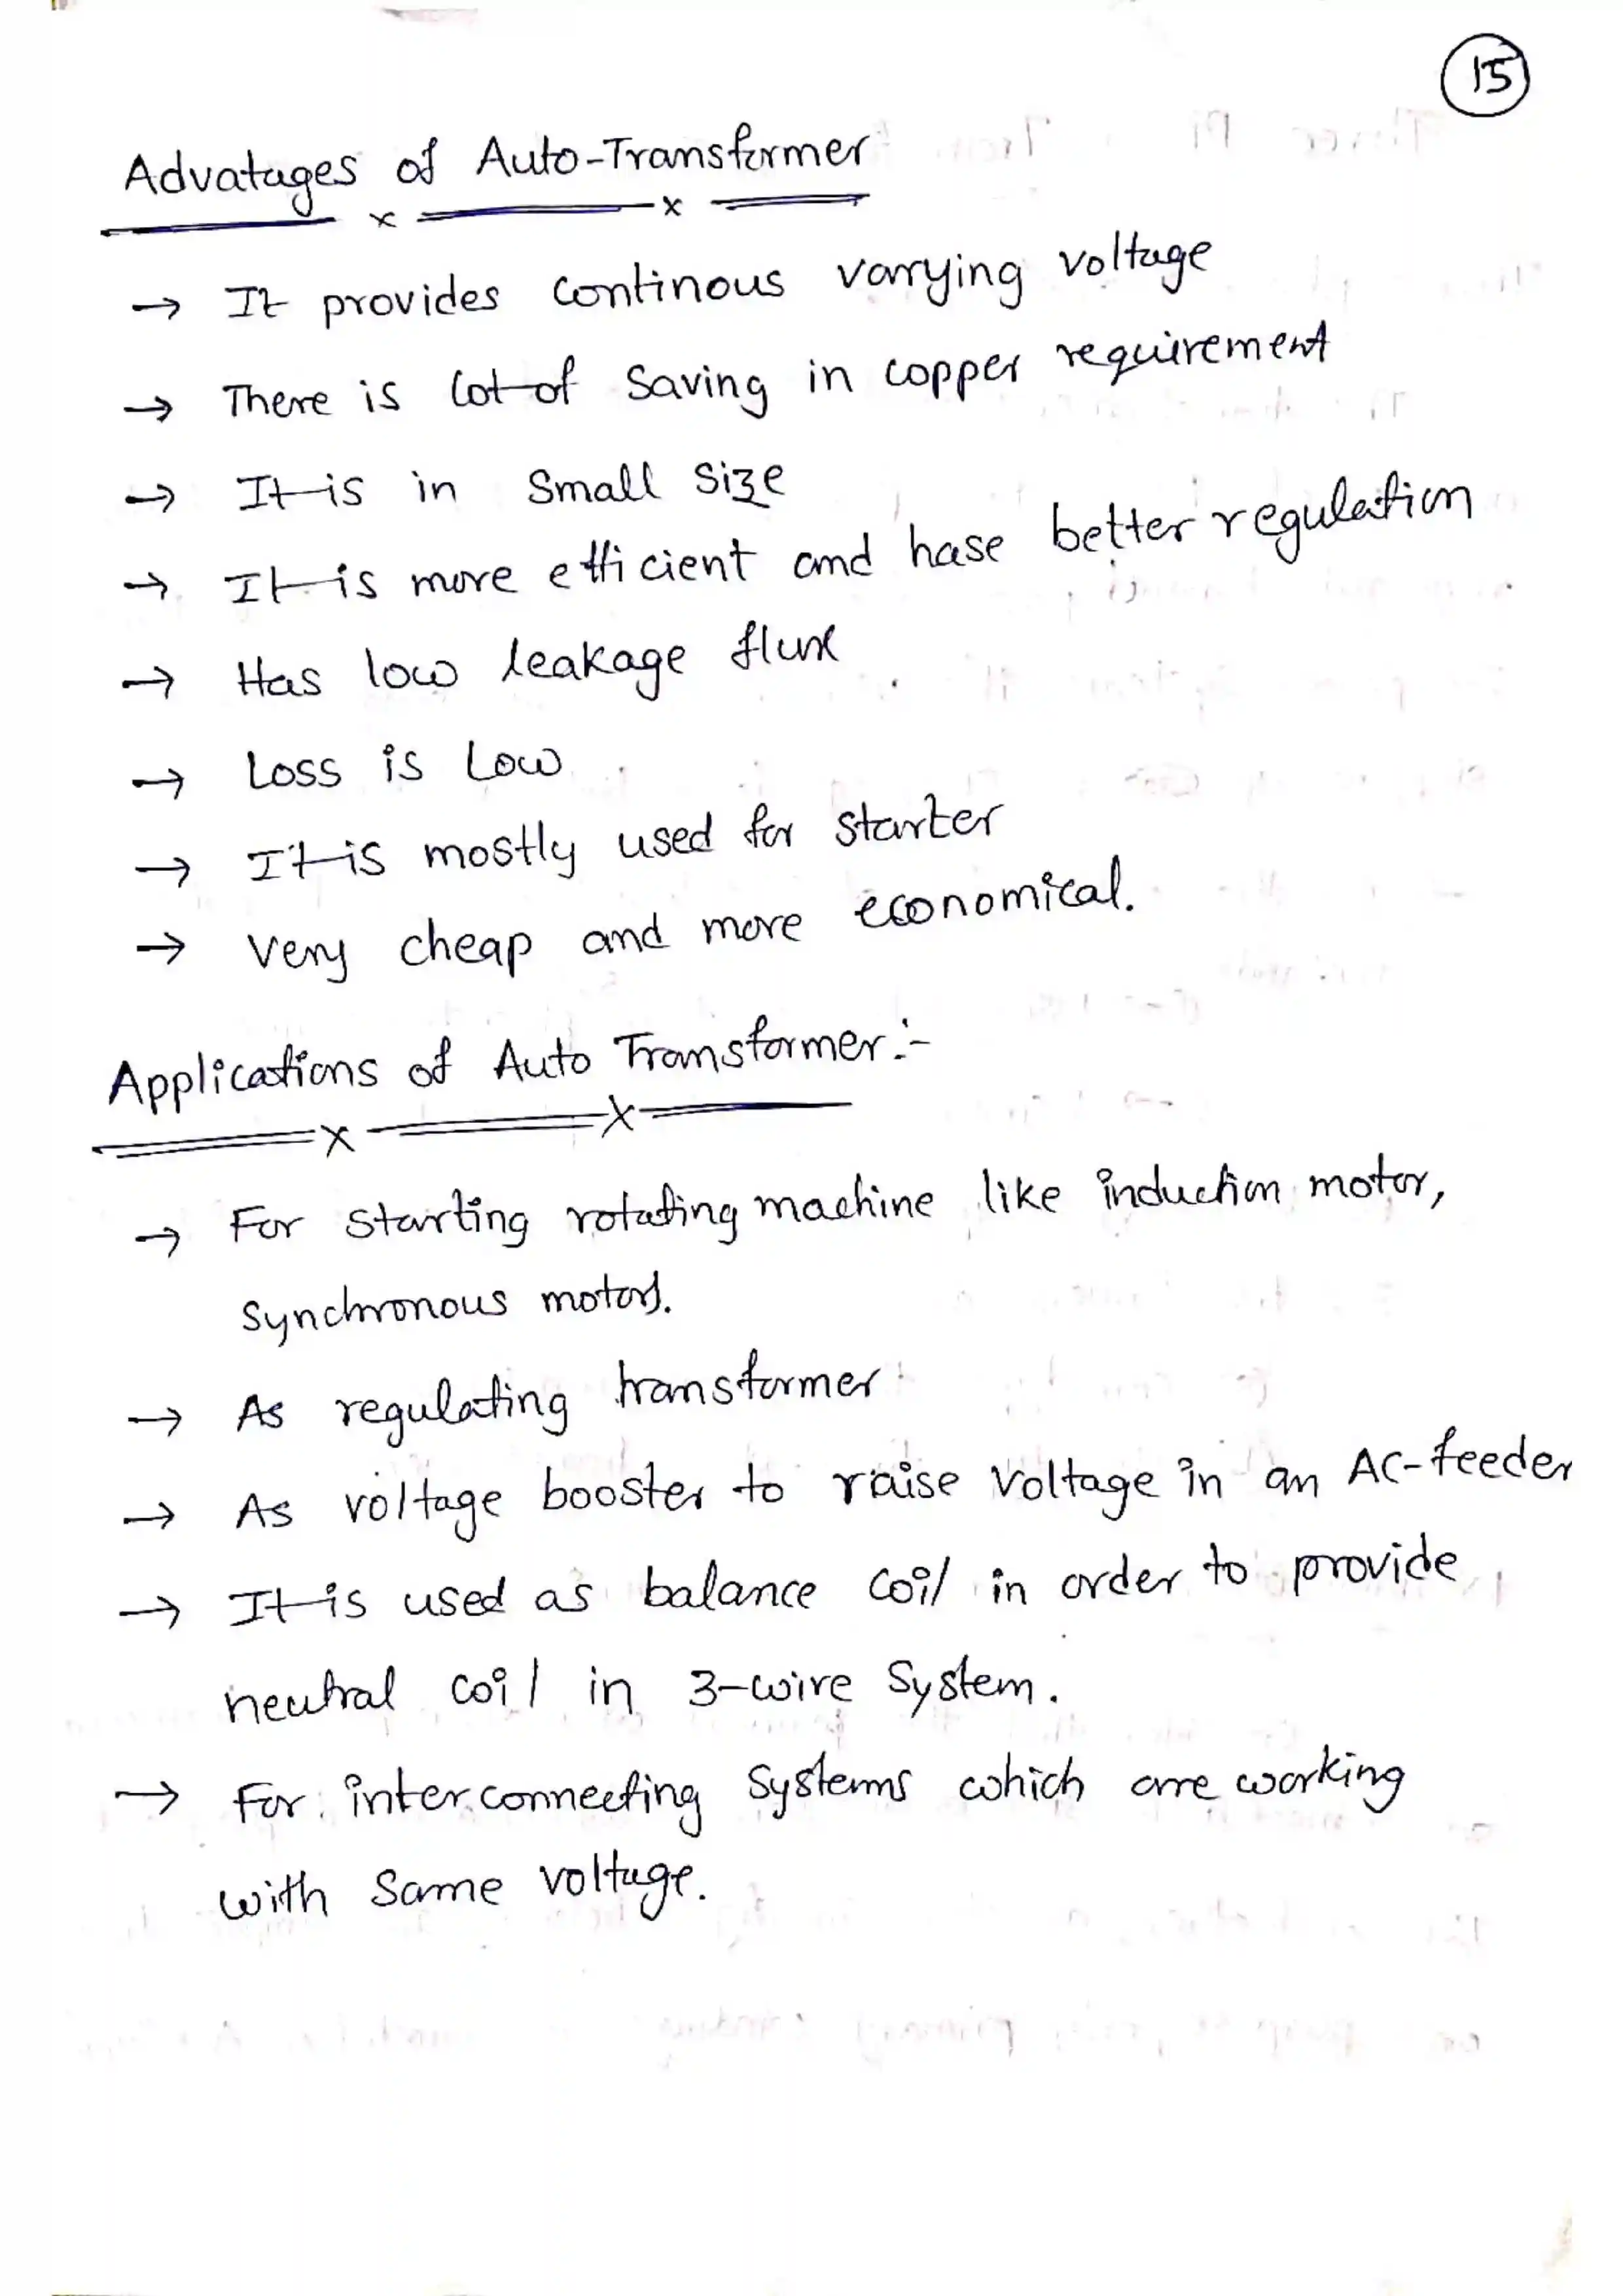 15
Advatages of Auto-Transformer
→ It provides continous varying voltage
→ There is lot of saving in copper requirement
→ It is in small size
→ It is more efficient and hase better regulation
→ Has low leakage flux
→ Loss is Low
→ It is mostly used for starter
→ Very cheap and more economical.
Applications of Auto Transformer:-
→ For starting rotating machine like induction motor,
synchronous motors.
→ As regulating transformer
→ As voltage booster to raise voltage in an AC-feeder
→ It is used as balance coil in order to provide
neutral coil in 3-wire system.
→ For interconnecting systems which are working
with same voltage.